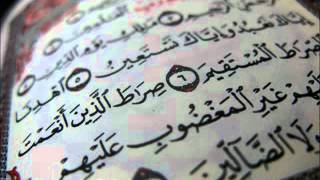 الرحمن الرحيم ۝ ملك يوم الدين ۝
إياك نعبد وإياك نستعين ۝ اهدنا
الصراط المستقيم ۝ صراط الذين أنعمت
عليهم غير المغضوب عليهم
ولا الضالين